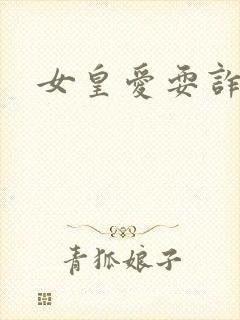 女皇愛耍詐
青狐娘子